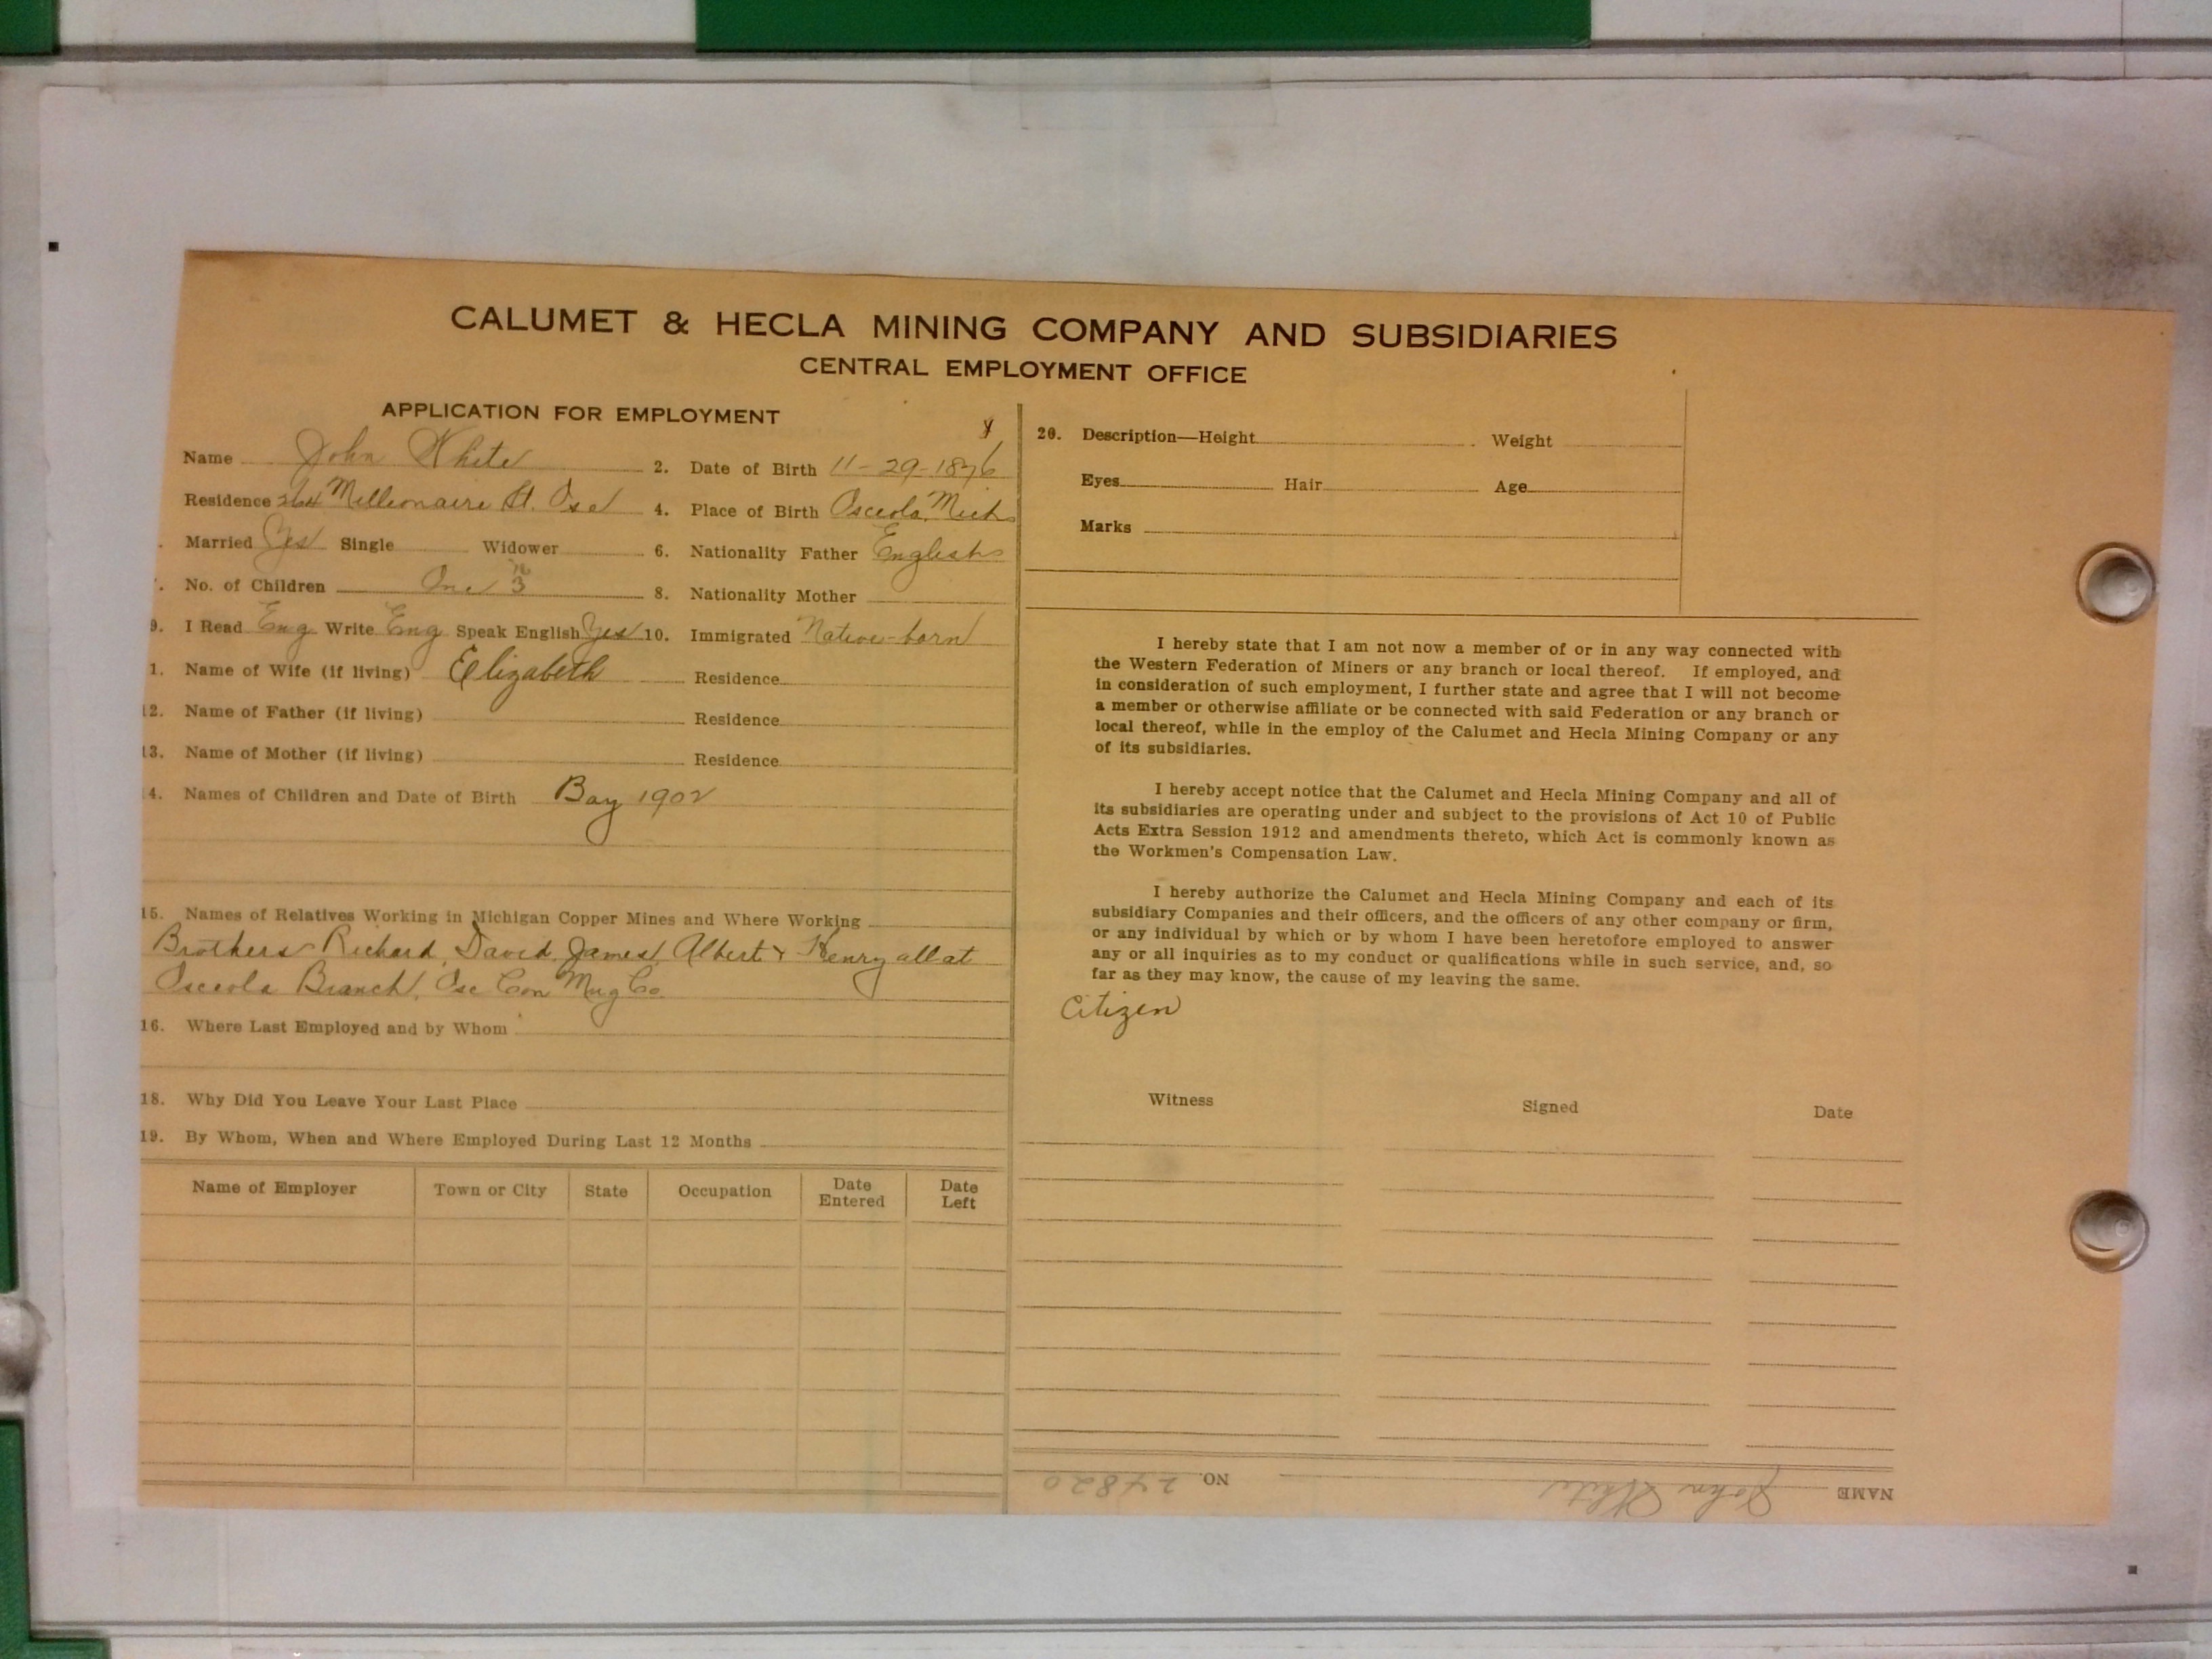 CALUMET & HECLA MINING COMPANY AND SUBSIDIARIES
CENTRAL EMPLOYMENT OFFICE
APPLICATION FOR EMPLOYMENT
Name John White 2. Date of Birth 11-29-1876
Residence 264 Millionaire St. Osc 4. Place of Birth Osceola, Mich
Married Yes Single Widower 6. Nationality Father English
No. of Children One 3 8. Nationality Mother
9. I Read Eng Write Eng Speak English Yes 10. Immigrated Native-born
1. Name of Wife (if living) Elizabeth Residence
12. Name of Father (if living) Residence
13. Name of Mother (if living) Residence
14. Names of Children and Date of Birth Boy 1902
15. Names of Relatives Working in Michigan Copper Mines and Where Working
Brothers Richard, David, James, Albert & Henry all at
Osceola Branch, Osc Con Mng Co.
16. Where Last Employed and by Whom
18. Why Did You Leave Your Last Place
19. By Whom, When and Where Employed During Last 12 Months
Name of Employer Town or City State Occupation Date Entered Date Left
20. Description—Height Weight
Eyes Hair Age
Marks
I hereby state that I am not now a member of or in any way connected with
the Western Federation of Miners or any branch or local thereof. If employed, and
in consideration of such employment, I further state and agree that I will not become
a member or otherwise affiliate or be connected with said Federation or any branch or
local thereof, while in the employ of the Calumet and Hecla Mining Company or any
of its subsidiaries.
I hereby accept notice that the Calumet and Hecla Mining Company and all of
its subsidiaries are operating under and subject to the provisions of Act 10 of Public
Acts Extra Session 1912 and amendments thereto, which Act is commonly known as
the Workmen's Compensation Law.
I hereby authorize the Calumet and Hecla Mining Company and each of its
subsidiary Companies and their officers, and the officers of any other company or firm,
or any individual by which or by whom I have been heretofore employed to answer
any or all inquiries as to my conduct or qualifications while in such service, and, so
far as they may know, the cause of my leaving the same.
Citizen
Witness Signed Date
NAME John White NO. 24820